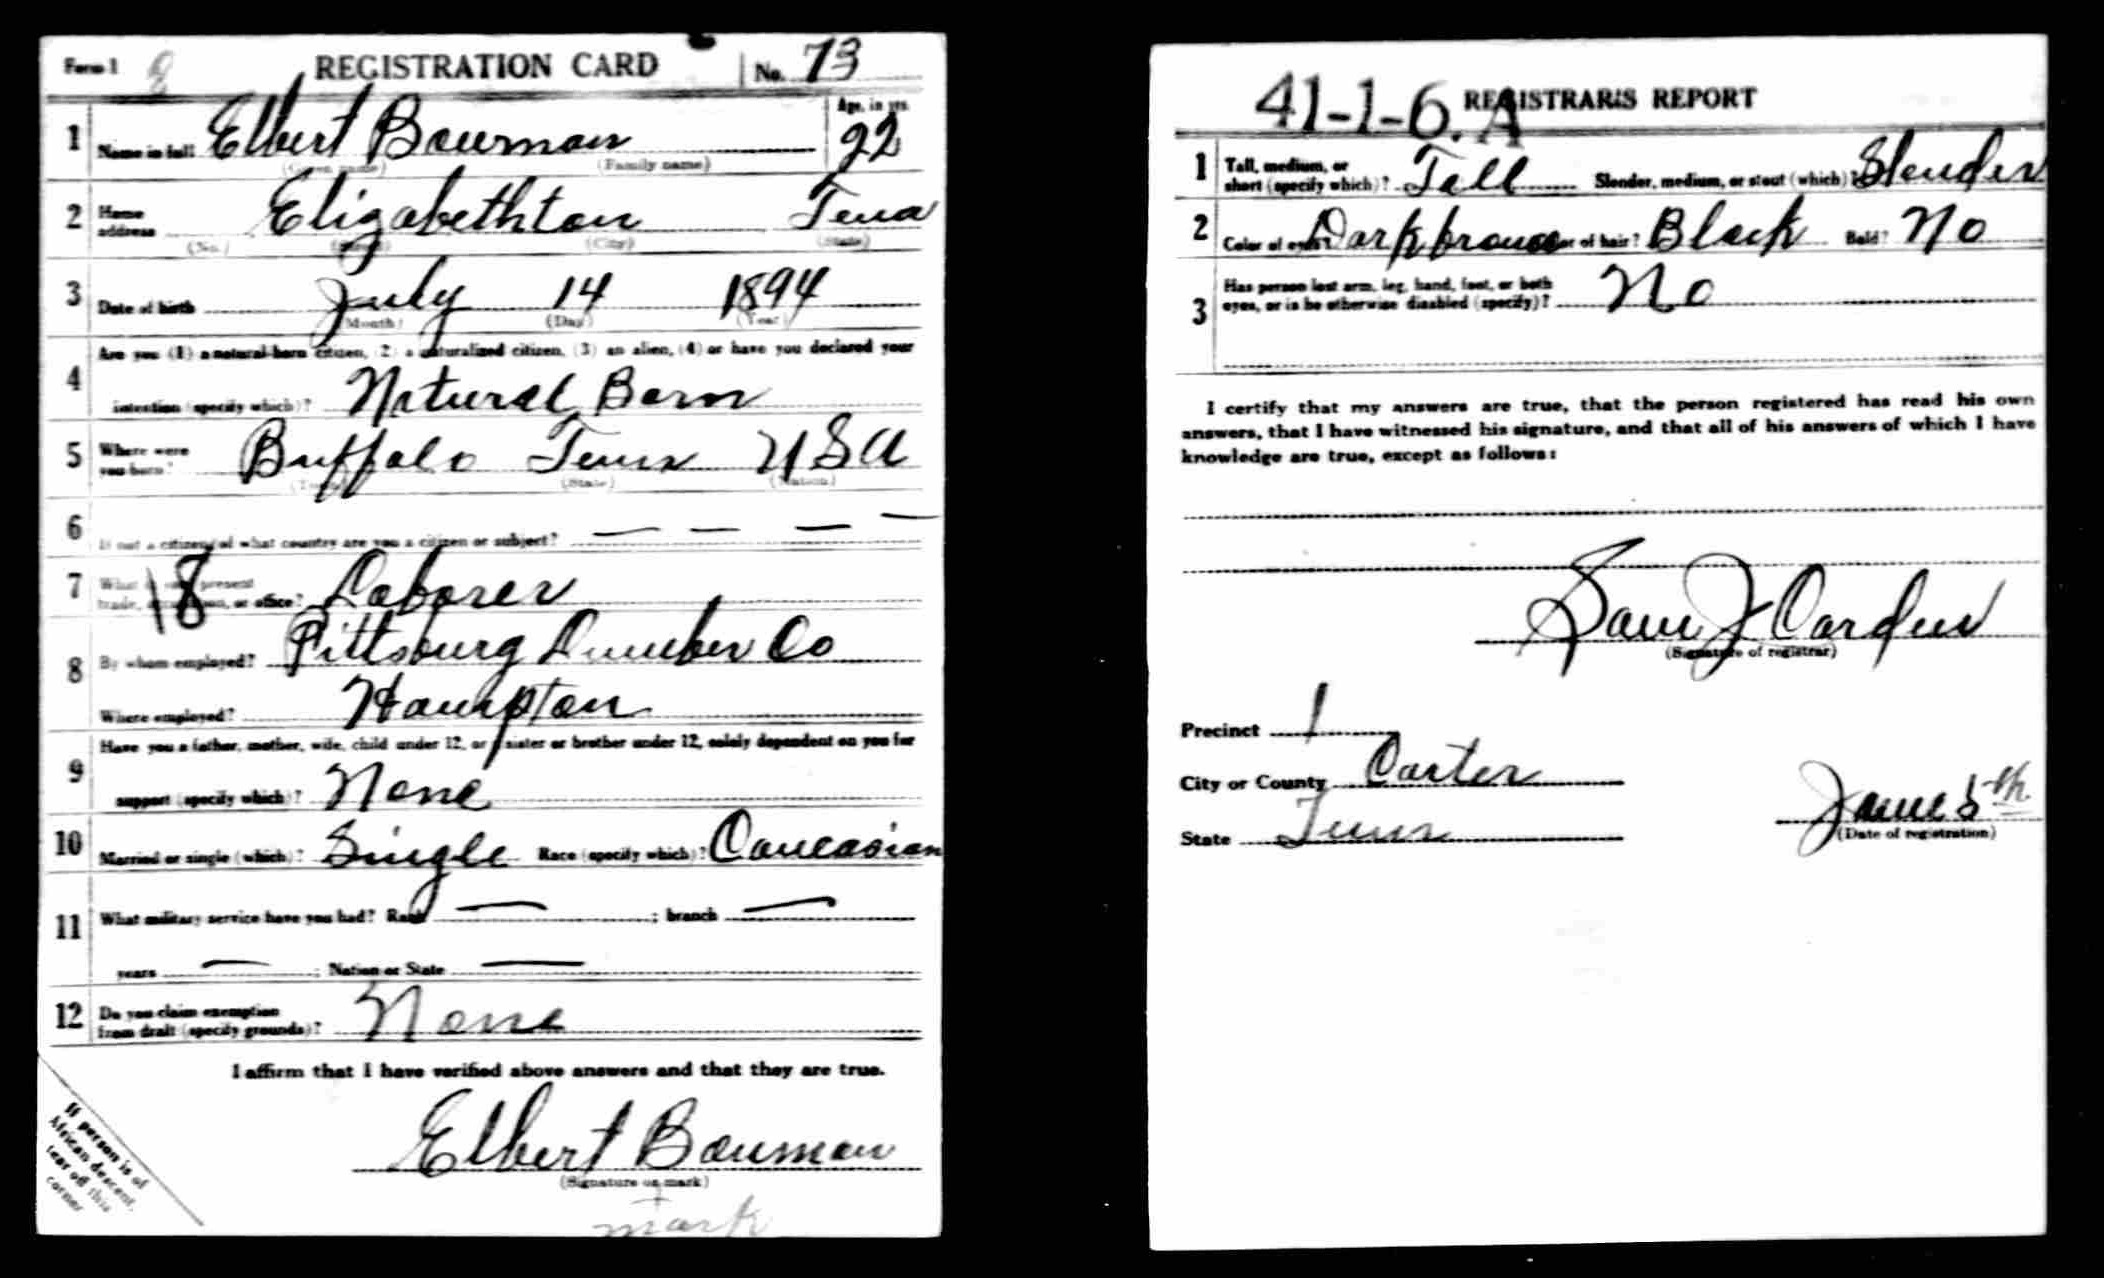 Form 1 REGISTRATION CARD No. 73
1 Name in full Elbert Bowman Age, in yrs. 22
(Given name) (Family name)
2 Home address Elizabethton Tenn
(No.) (Street) (City) (State)
3 Date of birth July 14 1894
(Month) (Day) (Year)
4 Are you (1) a natural-born citizen, (2) a naturalized citizen, (3) an alien, (4) or have you declared your
intention (specify which)? Natural Born
5 Where were you born? Buffalo Tenn USA
(Town) (State) (Nation)
6 If not a citizen, of what country are you a citizen or subject? — — — —
18
7 What is your present trade, occupation, or office? Laborer
8 By whom employed? Pittsburg Lumber Co
Where employed? Hampton
9 Have you a father, mother, wife, child under 12, or a sister or brother under 12, solely dependent on you for
support (specify which)? None
10 Married or single (which)? Single Race (specify which)? Caucasian
11 What military service have you had? Rank — ; branch —
years — ; Nation or State —
12 Do you claim exemption from draft (specify grounds)? None
I affirm that I have verified above answers and that they are true.
Elbert Bowman
(Signature or mark)
mark
If person is of
African descent,
tear off this
corner
41-1-6. A REGISTRAR'S REPORT
1 Tall, medium, or short (specify which)? Tall Slender, medium, or stout (which)? Slender
2 Color of eyes? Dark brown Color of hair? Black Bald? No
3 Has person lost arm, leg, hand, foot, or both eyes, or is he otherwise disabled (specify)? No
I certify that my answers are true, that the person registered has read his own
answers, that I have witnessed his signature, and that all of his answers of which I have
knowledge are true, except as follows:
Sam J
(Signature of registrar)
Precinct 1
City or County Carter
State Tenn
June 5th
(Date of registration)